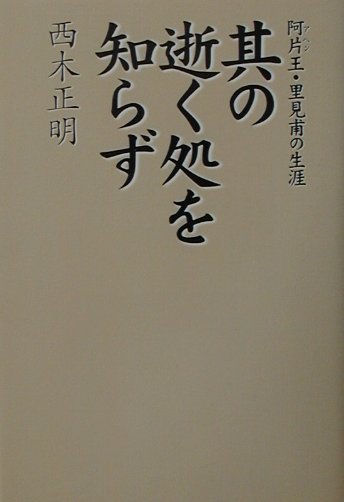 阿片王・里見甫の生涯
アヘン
其の
逝く処を
知らず
西木正明